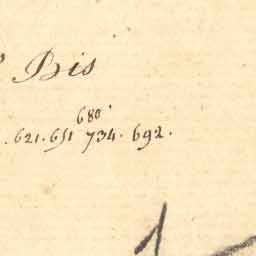 Bis
680
621. 651 734. 692.